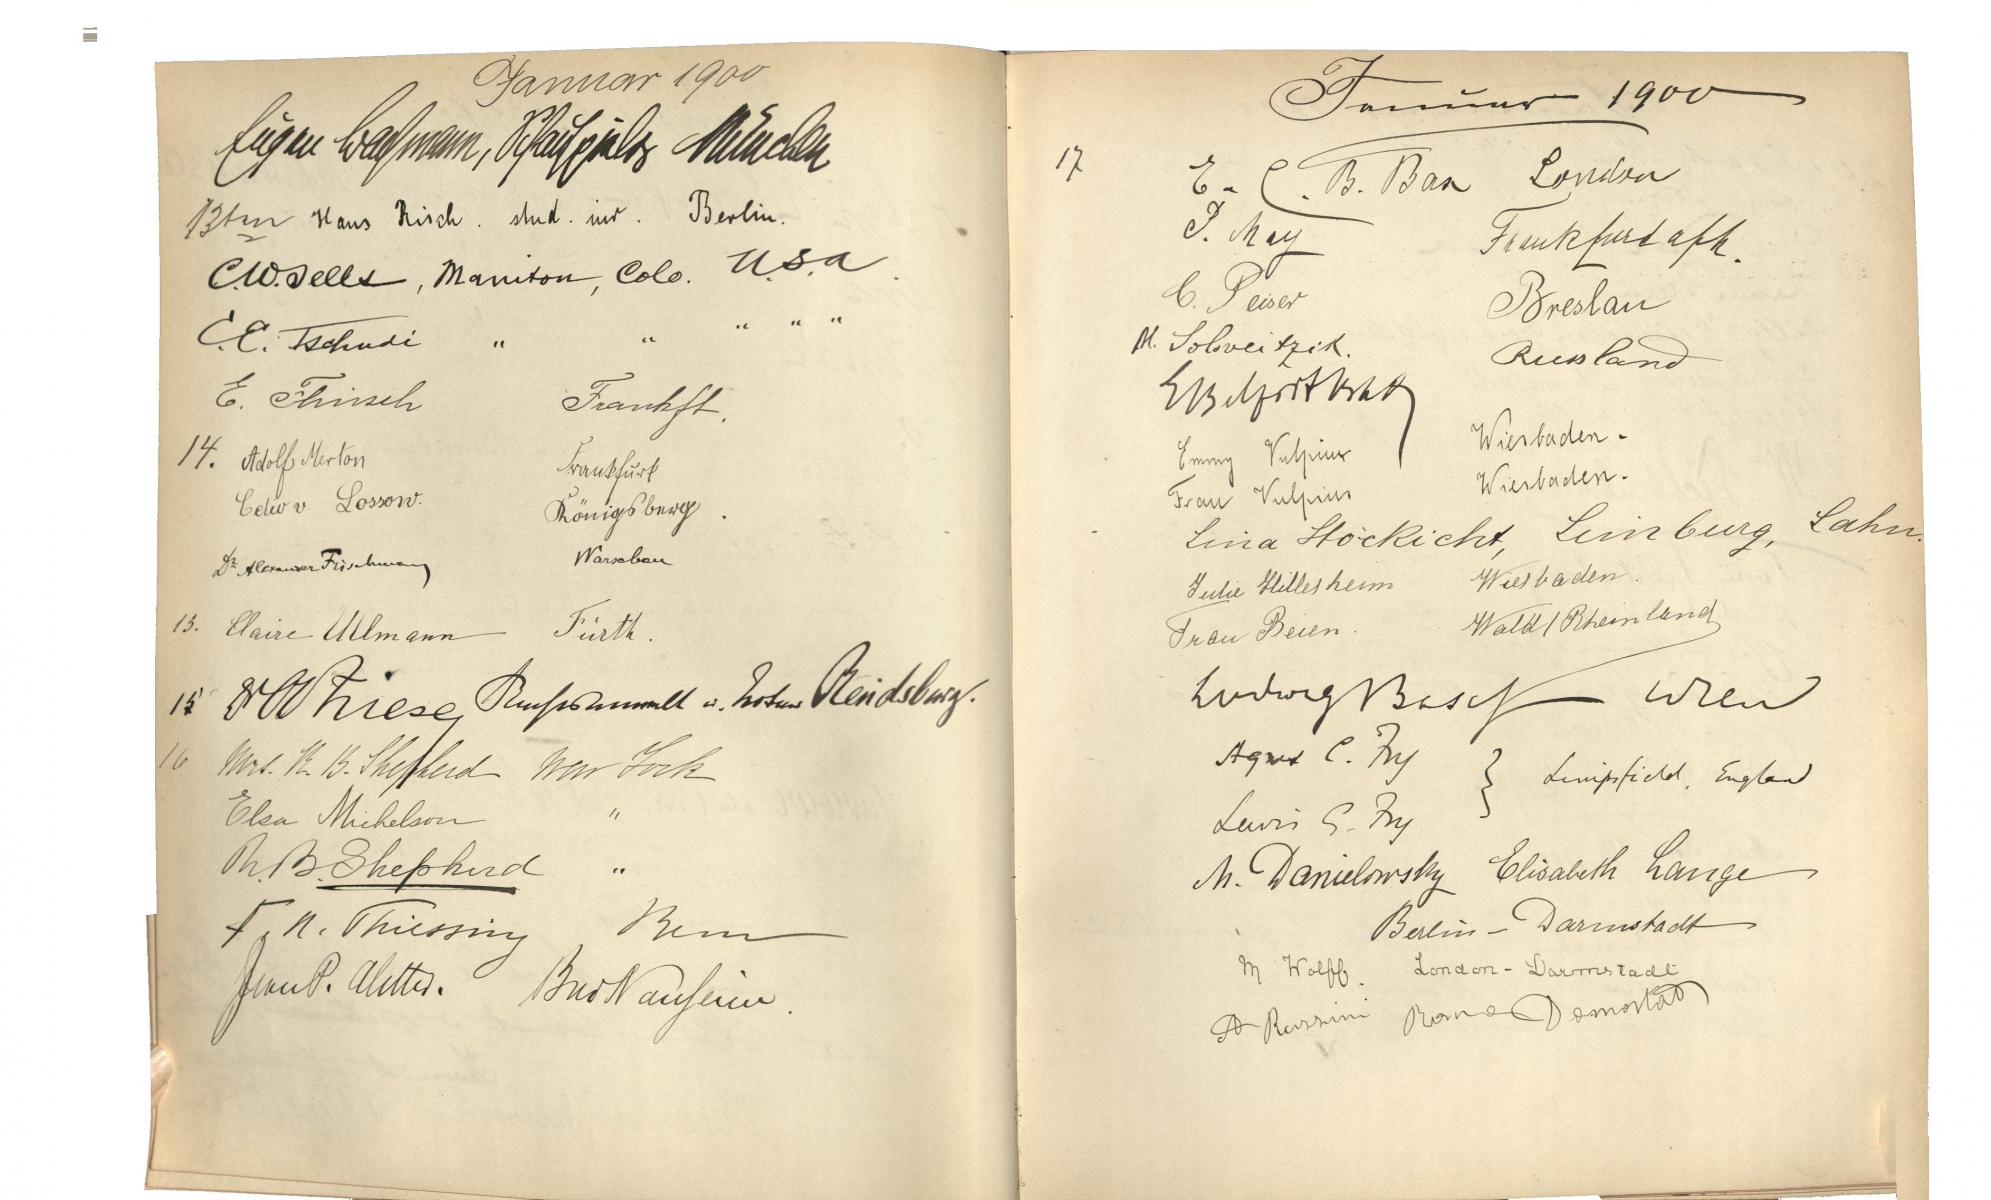 Januar 1900
Eugen Wachmann, Schauspieler München
13ten Hans Risch. stud. iur. Berlin.
C.W. Sells, Manitou, Colo. U.S.A.
C.C. Tschudi " " " " "
E. Flinsch Frankft.
14. Adolf Merton Frankfurt
v Lossow. Königsberg.
Dr Alexander Frischmann Warschau
15. Claire Ullmann Fürth.
15 Dr W Thiese, Rechtsanwalt u. Notar Rendsburg.
16 Mrs. R. B. Shepherd New York
Elsa Michelson "
R. B. Shepherd "
F. N. Thiessing Bern
Jean P. Aletter. Bad Nauheim.
Januar 1900
17 E. C. B. Bax London
P. May Frankfurt a/M.
C. Peiser Breslau
M. Solweitzik. Russland
Emmy Vulpius Wiesbaden.
Frau Vulpius Wiesbaden.
Lina Stöckicht, Limburg, Lahn.
Julie Hillesheim Wiesbaden.
Frau Beien. Wald/Rheinland
Ludwig Basch Wien
Agnes C. Fry } Limpsfield, England
Lewis G. Fry
M. Danielowsky Elisabeth Lange
Berlin - Darmstadt
M Wolff. London - Darmstadt
A Rossini Rome